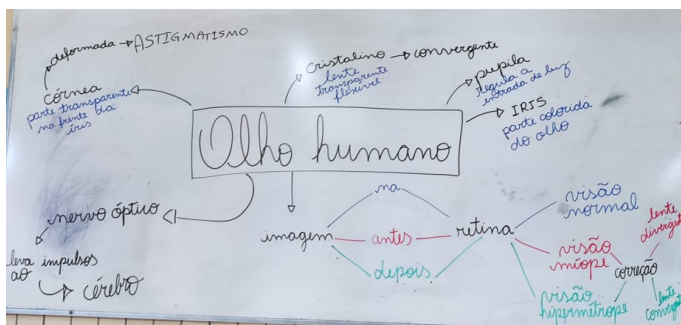 deformada → ASTIGMATISMO
córnea
parte transparente
na frente da
íris
cristalino → convergente
lente
transparente
flexível
pupila
regula a
entrada de luz
IRIS
parte colorida
do olho
Olho humano
nervo óptico
leva impulsos
ao
cérebro
imagem
na
antes
depois
retina
visão
normal
visão
míope
visão
hipermétrope
correção
lente